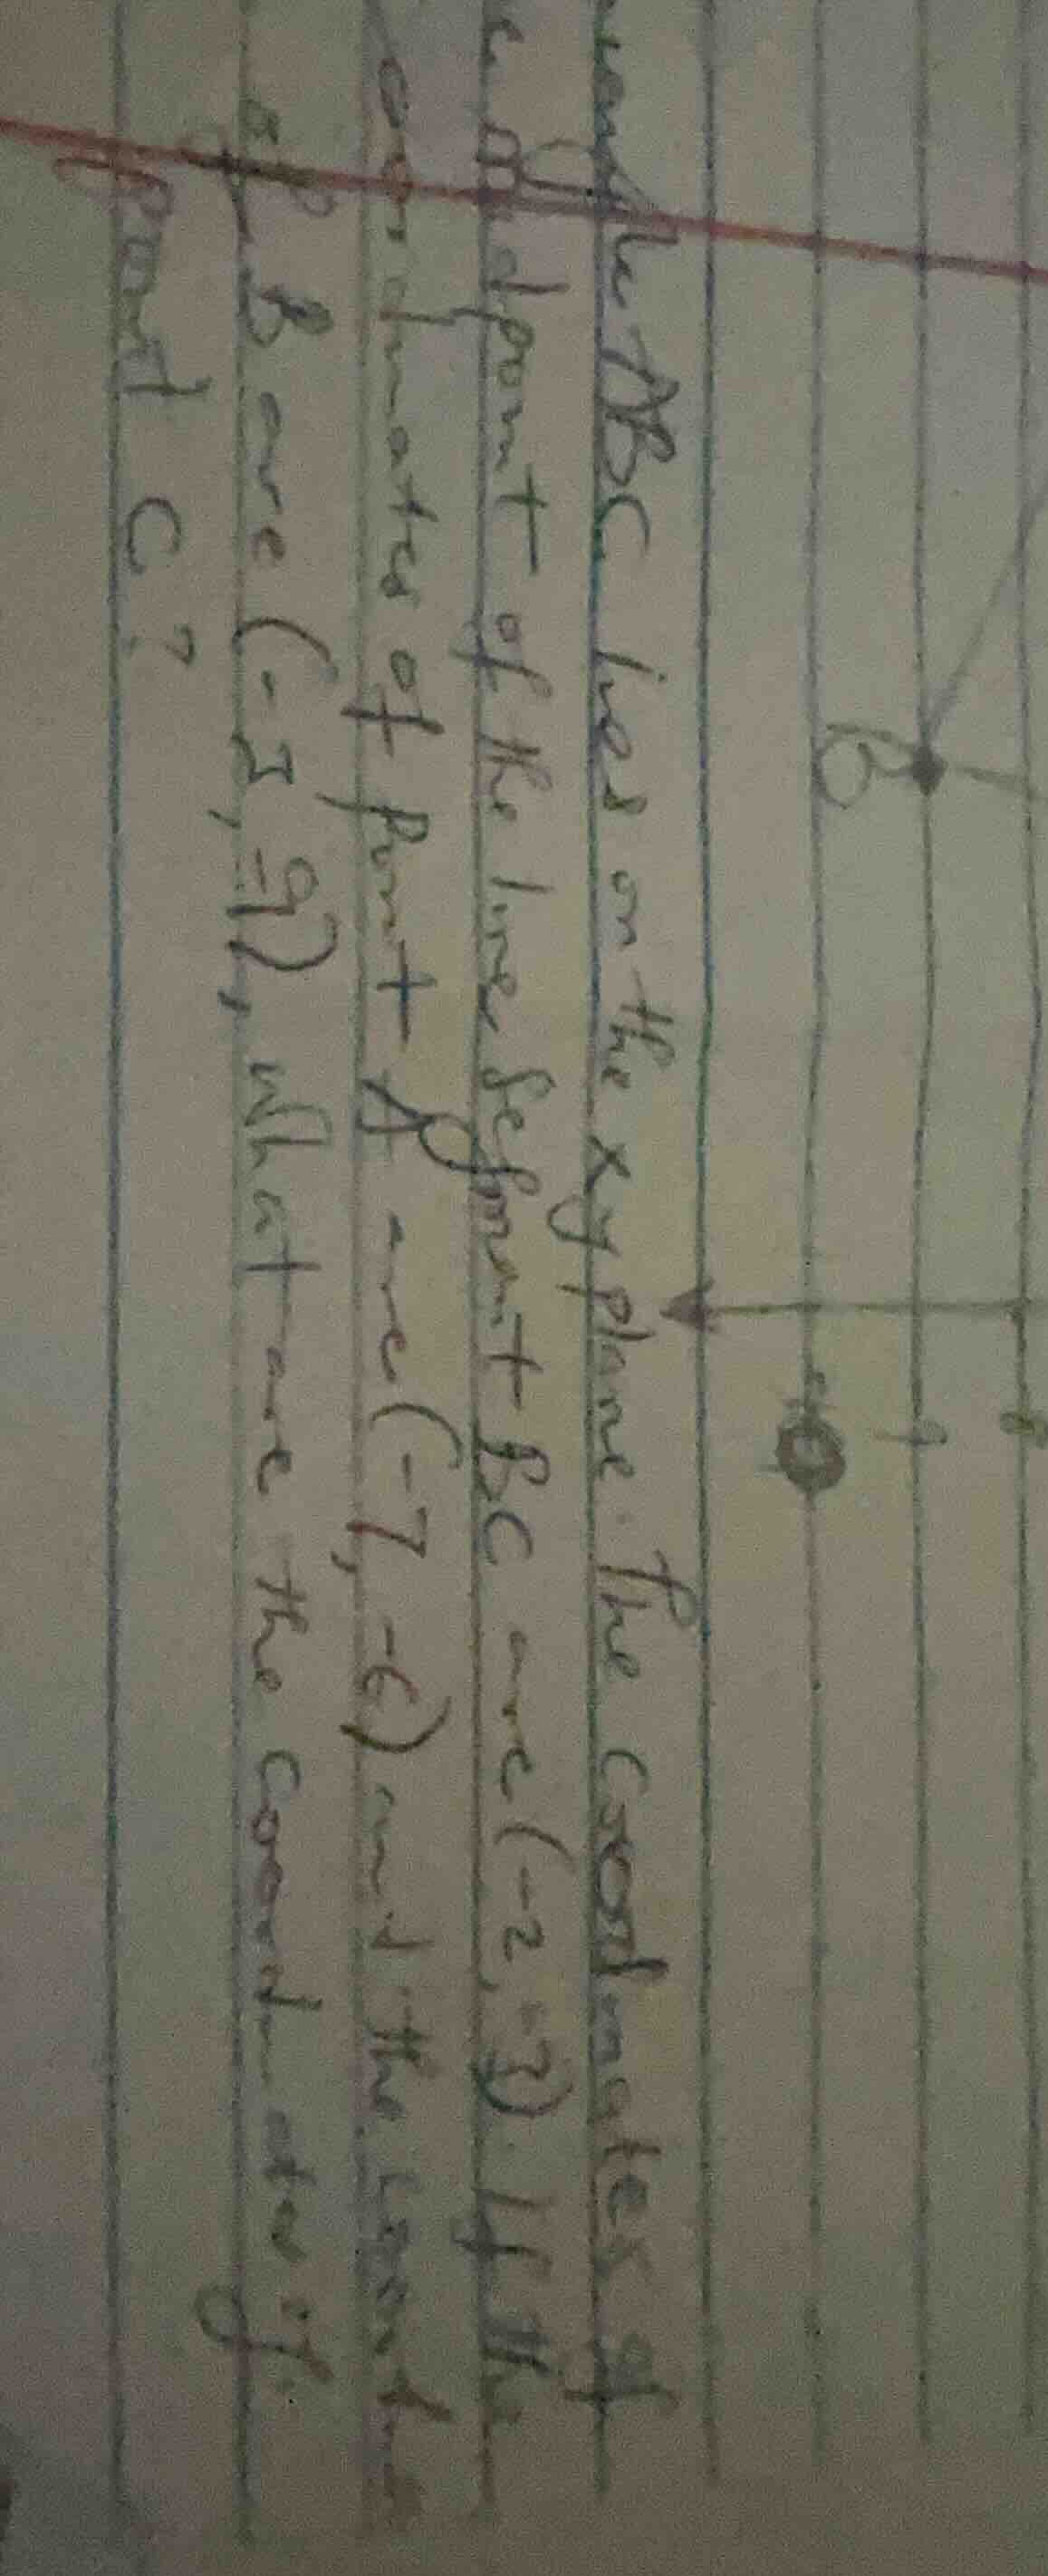 B
9
ABC lies on the xy plane. The coordinates of
midpoint of the line segment BC are (-2,-3). If the
coordinates of point A are (-7,-6) and the
of B are (-3,-9), what are the coordinates of
point C?